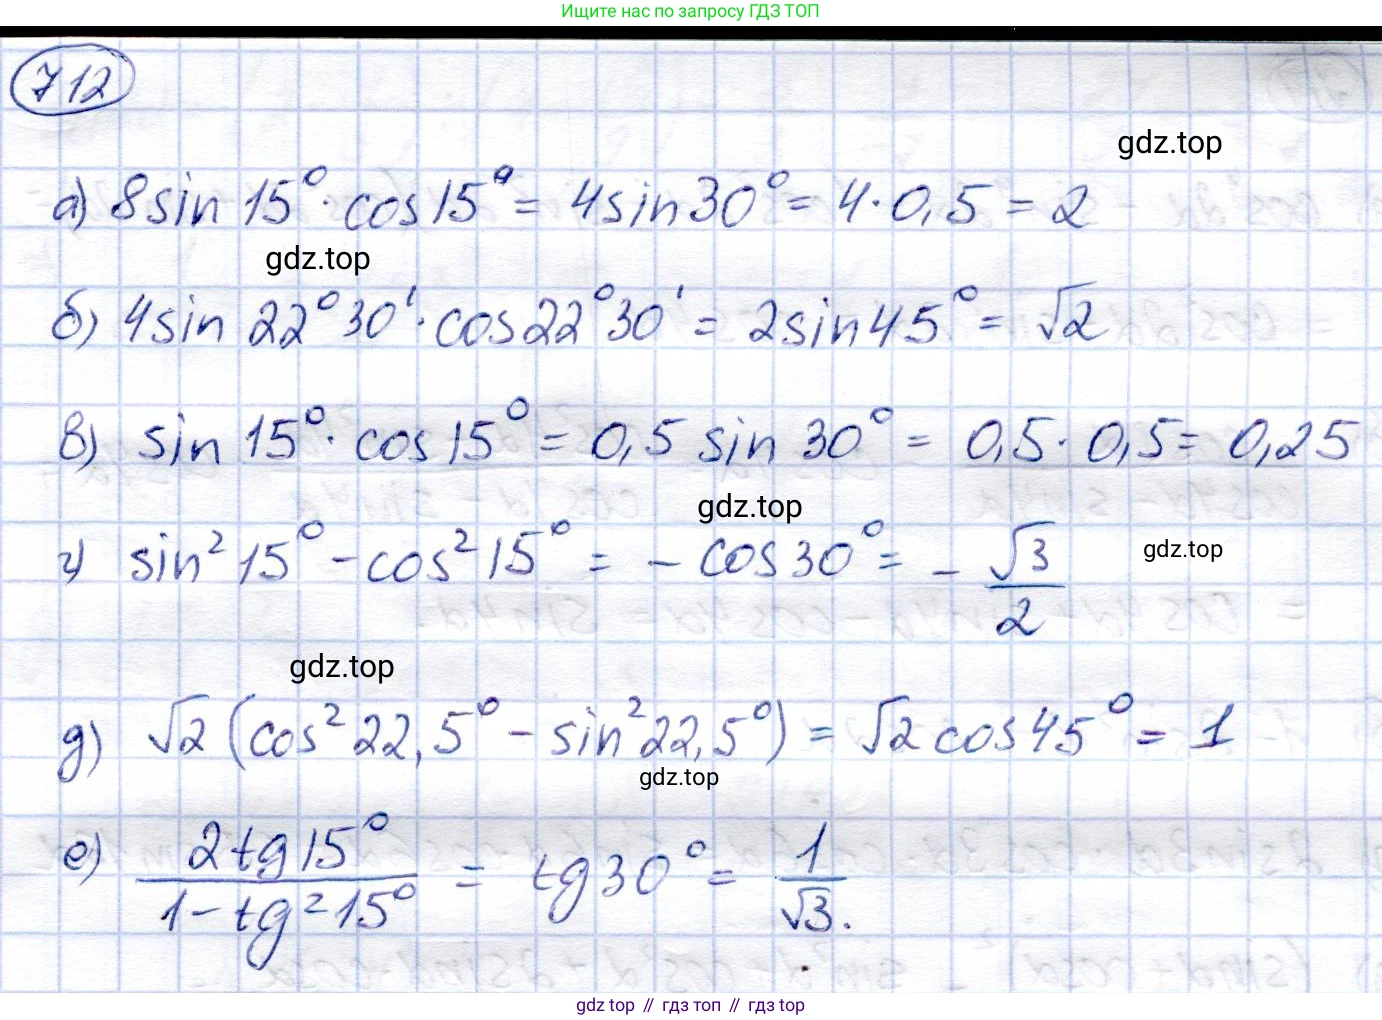 Ищите нас по запросу ГДЗ ТОП
712
gdz.top
а) 8sin 15° · cos15° = 4sin30° = 4·0,5 = 2
gdz.top
б) 4sin 22°30' · cos22°30' = 2sin45° = √2
в) sin 15° · cos15° = 0,5 sin 30° = 0,5·0,5 = 0,25
gdz.top
г) sin² 15° - cos² 15° = - cos30° = - √3/2
gdz.top
gdz.top
д) √2 (cos² 22,5° - sin² 22,5°) = √2 cos45° = 1
gdz.top
е) 2tg15°/1-tg²15° = tg30° = 1/√3.
gdz top // гдз топ // гдз top